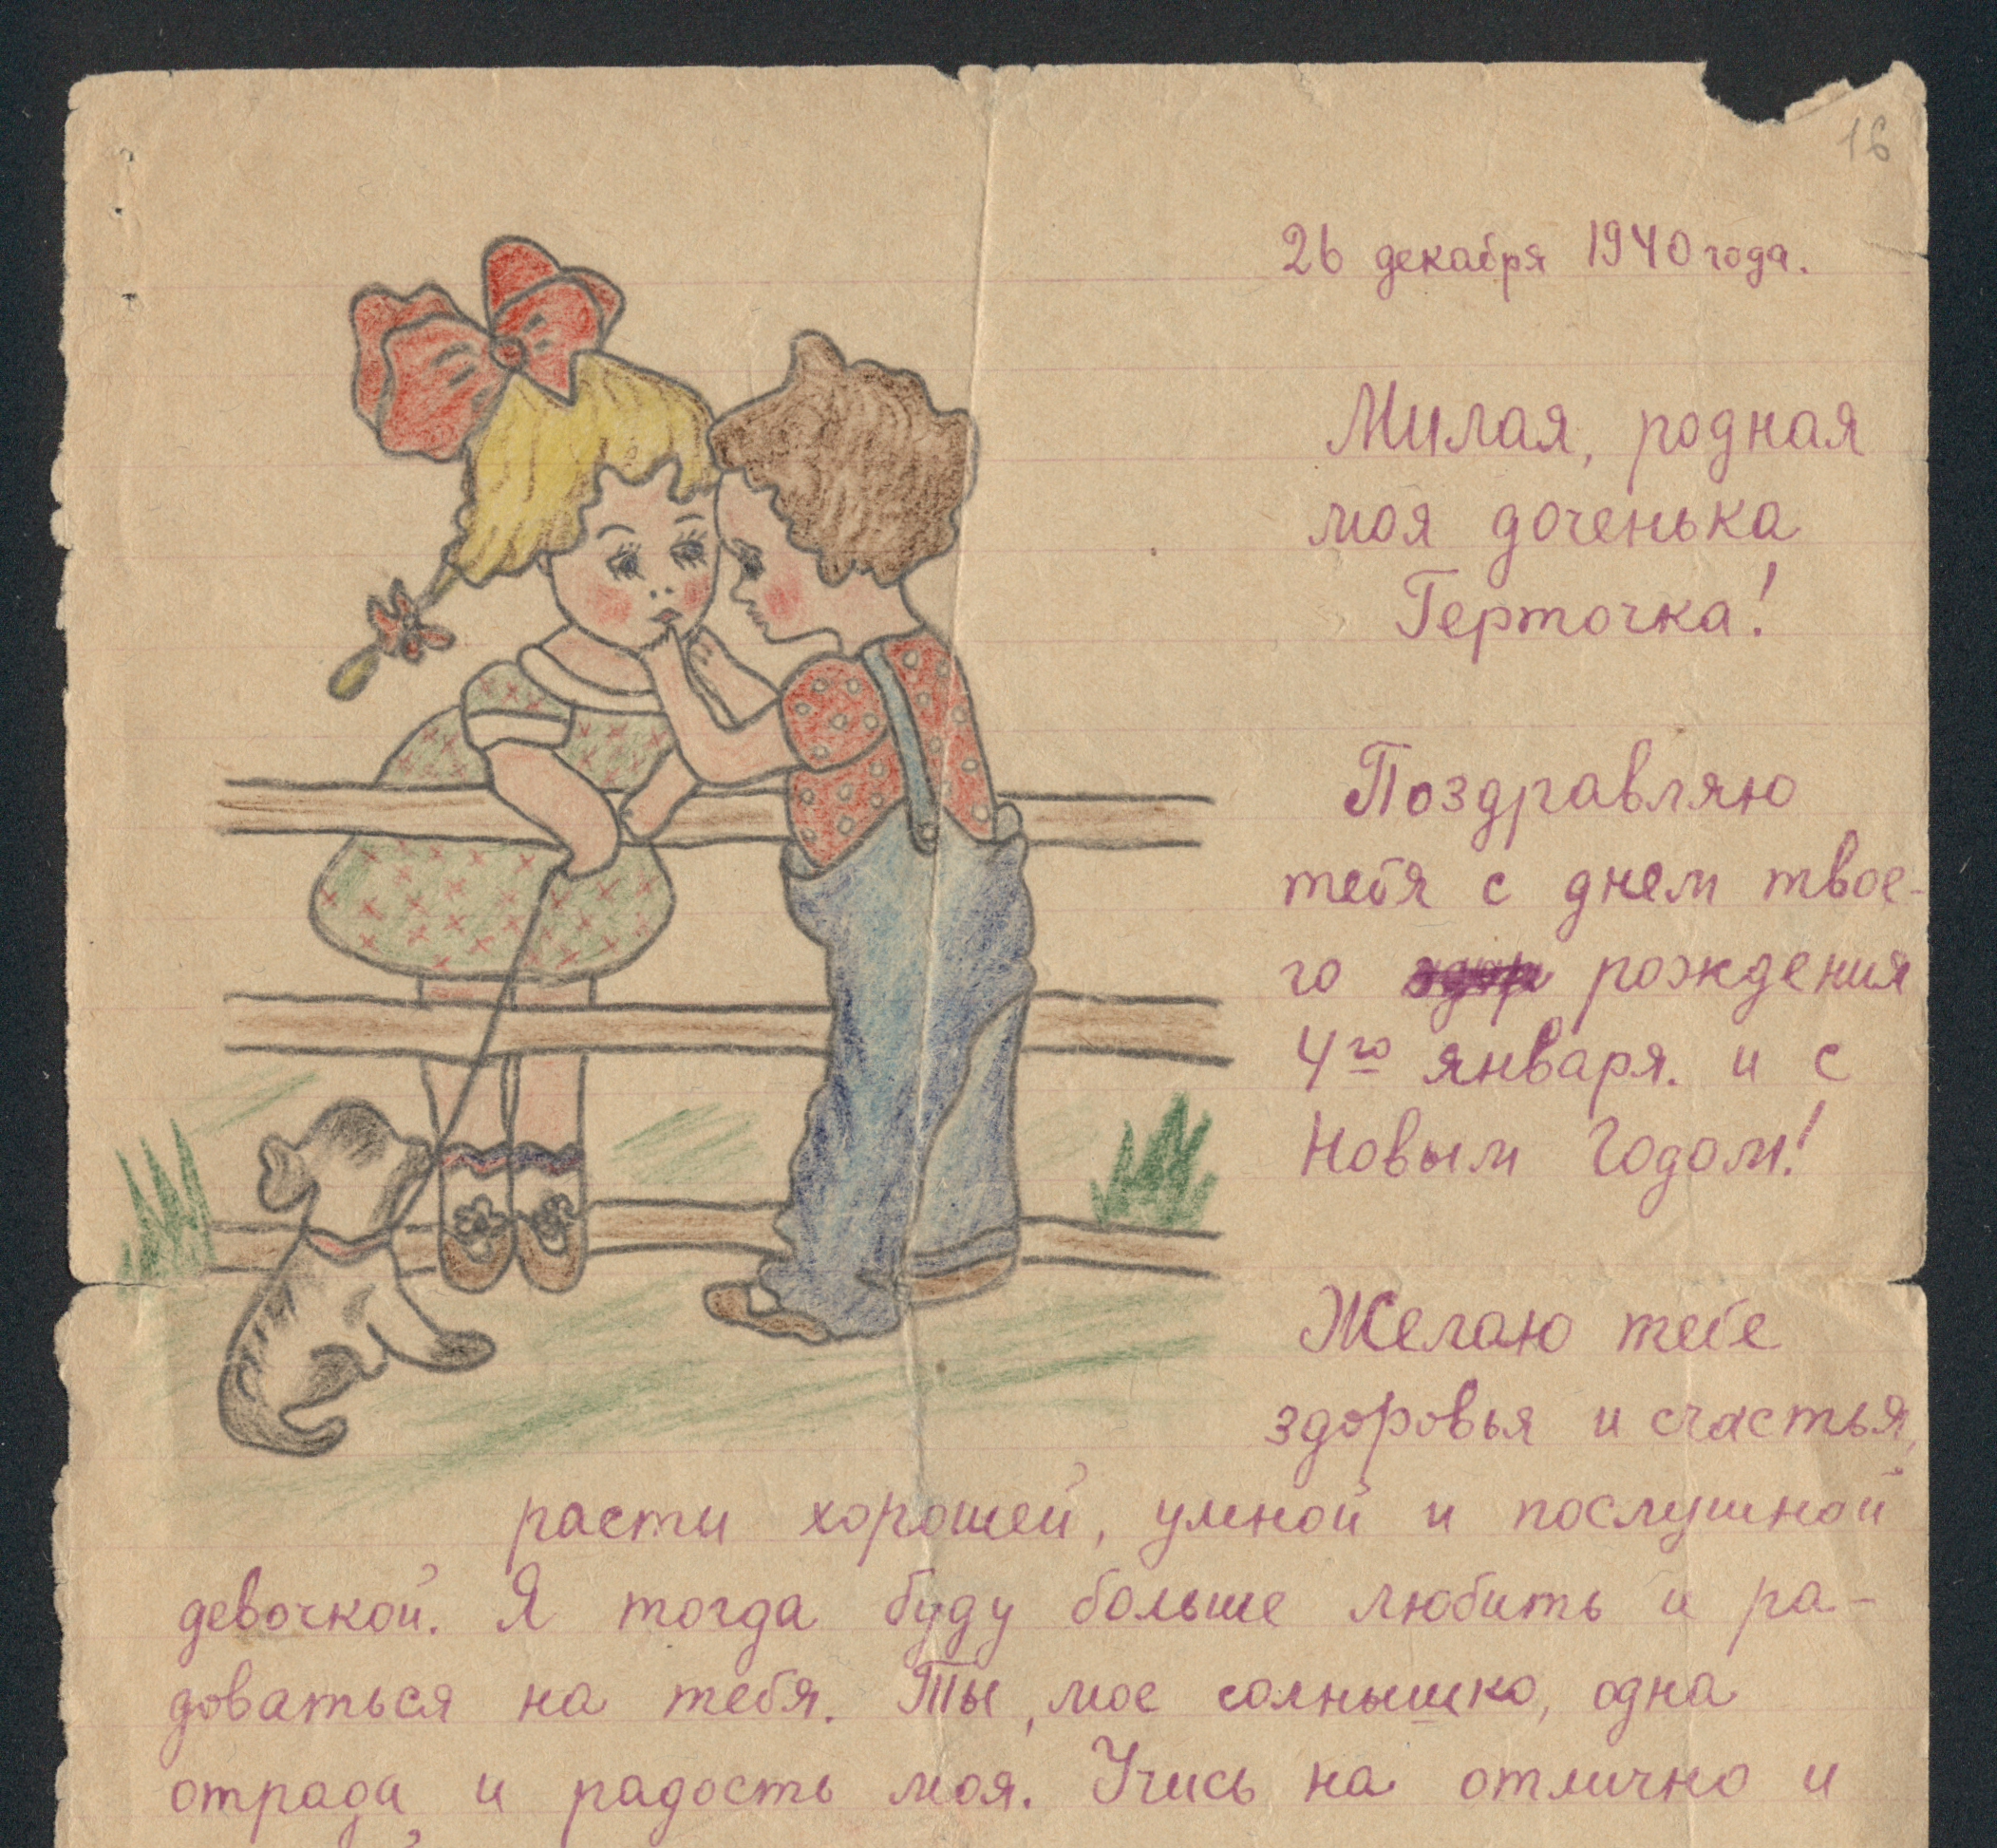 16
26 декабря 1940 года.
Милая, родная
моя доченька
Герточка!
Поздравляю
тебя с днем твое-
го рождения
4го января. и с
Новым Годом!
Желаю тебе
здоровья и счастья,
расти хорошей, умной и послушной
девочкой. Я тогда буду больше любить и ра-
доваться на тебя. Ты, мое солнышко, одна
отрада и радость моя. Учись на отлично и